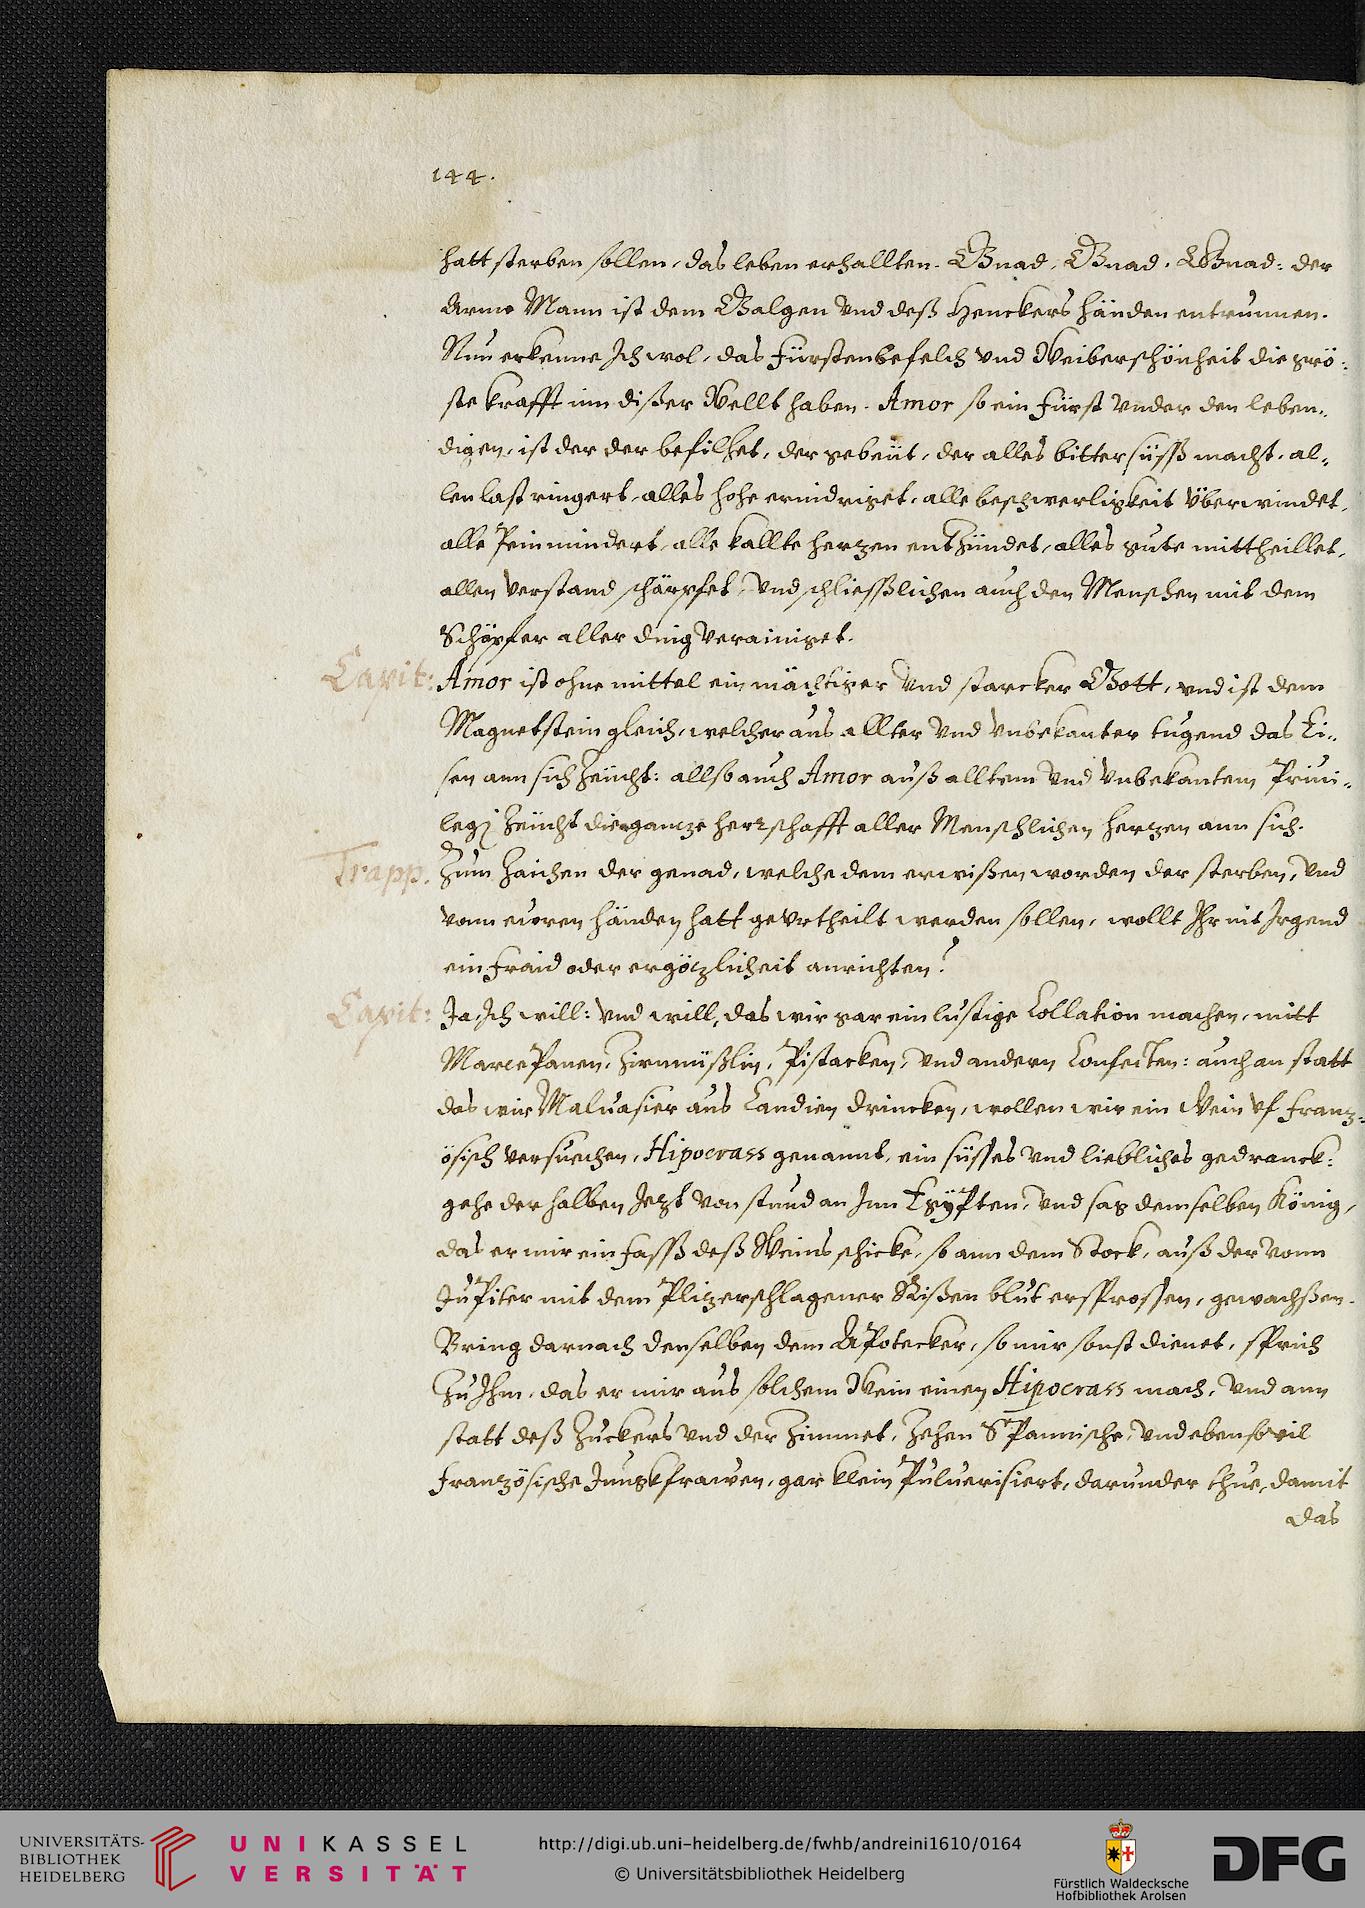 144.
hatt sterben sollen, das leben erhallten. Gnad, Gnad, Gnad: der
Arme Mann ist dem Galgen vnd deß Henckers händen entrunnen.
Nun erkenne Ich wol, das Fürstenbefelch vnd Weiberschönheit die grö:
ste krafft inn dißer Wellt haben. Amor so ein Fürst vnder den leben,,
digen, ist der der befilhet, der gebeüt, der alles bitter süsß macht, al,,
len last ringert, alles hohe ernidriget, alle beschwerligkeit überwindet,
alle Pein mindert, alle kallte herzen entzündet, alles gute mittheillet,
allen verstand schärpfet, vnd schliesßlichen auch den Menschen mit dem
Schöpfer aller ding verainiget.
Capit: Amor ist ohne mittel ein mächtiger vnd starcker Gott, vnd ist dem
Magnetstein gleich, welcher aus allter vnd vnbekanter tugend das Ei,,
sen ann sich zeücht: allso auch Amor auß alltem vnd vnbekantem Priui,,
legj zeücht die gancze herrschafft aller Menschlichen herzen ann sich.
Trapp. Zum Zaichen der genad, welche dem erwißen worden der sterben, vnd
vonn euren händen hatt gevrtheilt werden sollen, wollt Ihr nit Irgend
ein fraid oder ergöczlicheit anrichten?
Capit: Ja, Ich will: vnd will, das wir gar ein lustige Collation machen, mitt
MarcePanen, Zirnnüßlin, Pistacken, vnd andern Confecten: auch an statt
das wir Maluasier aus Candien drincken, wollen wir ein Wein vf Franz:
ösisch versuechen, Hipocrass genannt, ein süsses vnd liebliches gedranck:
gehe derhalben Jezt von stund an Inn EgÿPten, vnd sag demselben König,
das er mir ein Fasß deß Weins schicke, so ann dem Stock, auß der vonn
JuPiter mit dem Pliz erschlagener Rißen blut ersprossen, gewachßen.
Bring darnach denselben dem APotecker, so mir sonst dienet, sprich
Zu Ihm, das er mir aus solchem Wein einen Hipocrass mach, vnd ann
statt deß Zuckers vnd der Zimmet, Zehen SPannische, vnd eben sovil
Französische Junckfrawen, gar klein Puluerisiert, darunder thue, damit
das
UNIVERSITÄTS-
BIBLIOTHEK
HEIDELBERG
UNIKASSEL
VERSITÄT
http://digi.ub.uni-heidelberg.de/fwhb/andreini1610/0164
© Universitätsbibliothek Heidelberg
Fürstlich Waldecksche
Hofbibliothek Arolsen
DFG